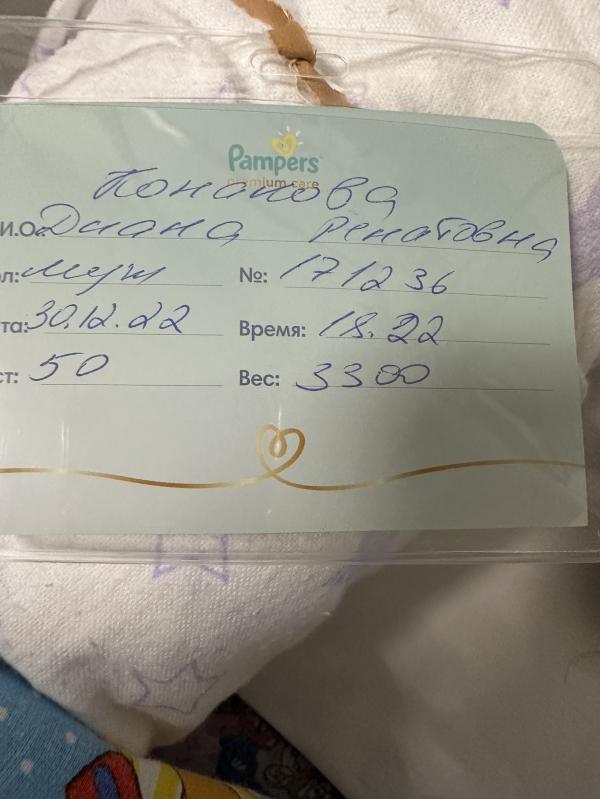 Pampers
premium care
Конанова
И.О.: Диана Ренатовна
ол: муж №: 171236
та: 30.12.22 Время: 18.22
ст: 50 Вес: 3300